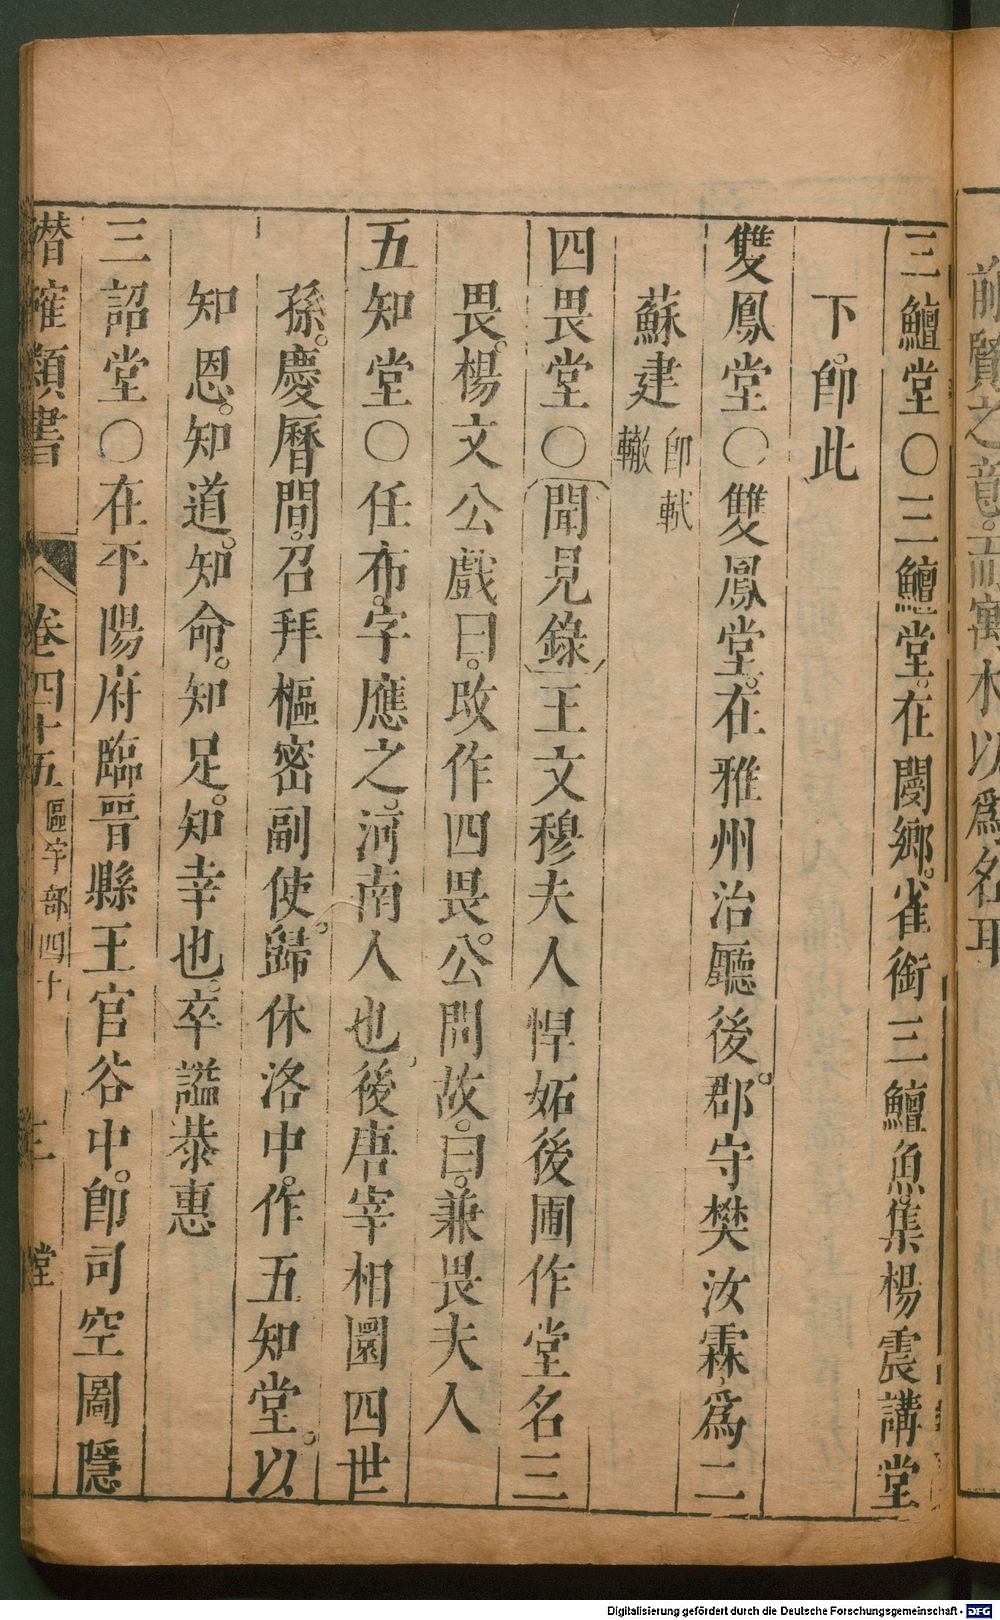 前賢之意
水以爲名耳
三鱣堂○三鱣堂在閿鄉雀銜三鱣魚集楊震講堂
下卽此
雙鳳堂○雙鳳堂在雅州治廳後郡守樊汝霖爲二
蘇建卽軾轍
四畏堂○聞見錄王文穆夫人悍妬後圃作堂名三
畏楊文公戲曰改作四畏公問故曰兼畏夫人
五知堂○任布字應之河南人也後唐宰相圜四世
孫慶曆間召拜樞密副使歸休洛中作五知堂以
知恩知道知命知足知幸也卒謚恭惠
三詔堂○在平陽府臨晉縣王官谷中卽司空圖隱
潛確類書 卷四十五 區宇部四十 三 堂
Digitalisierung gefördert durch die Deutsche Forschungsgemeinschaft - DFG